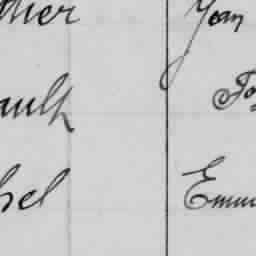 ther Jean
ault Jo
hel Emm